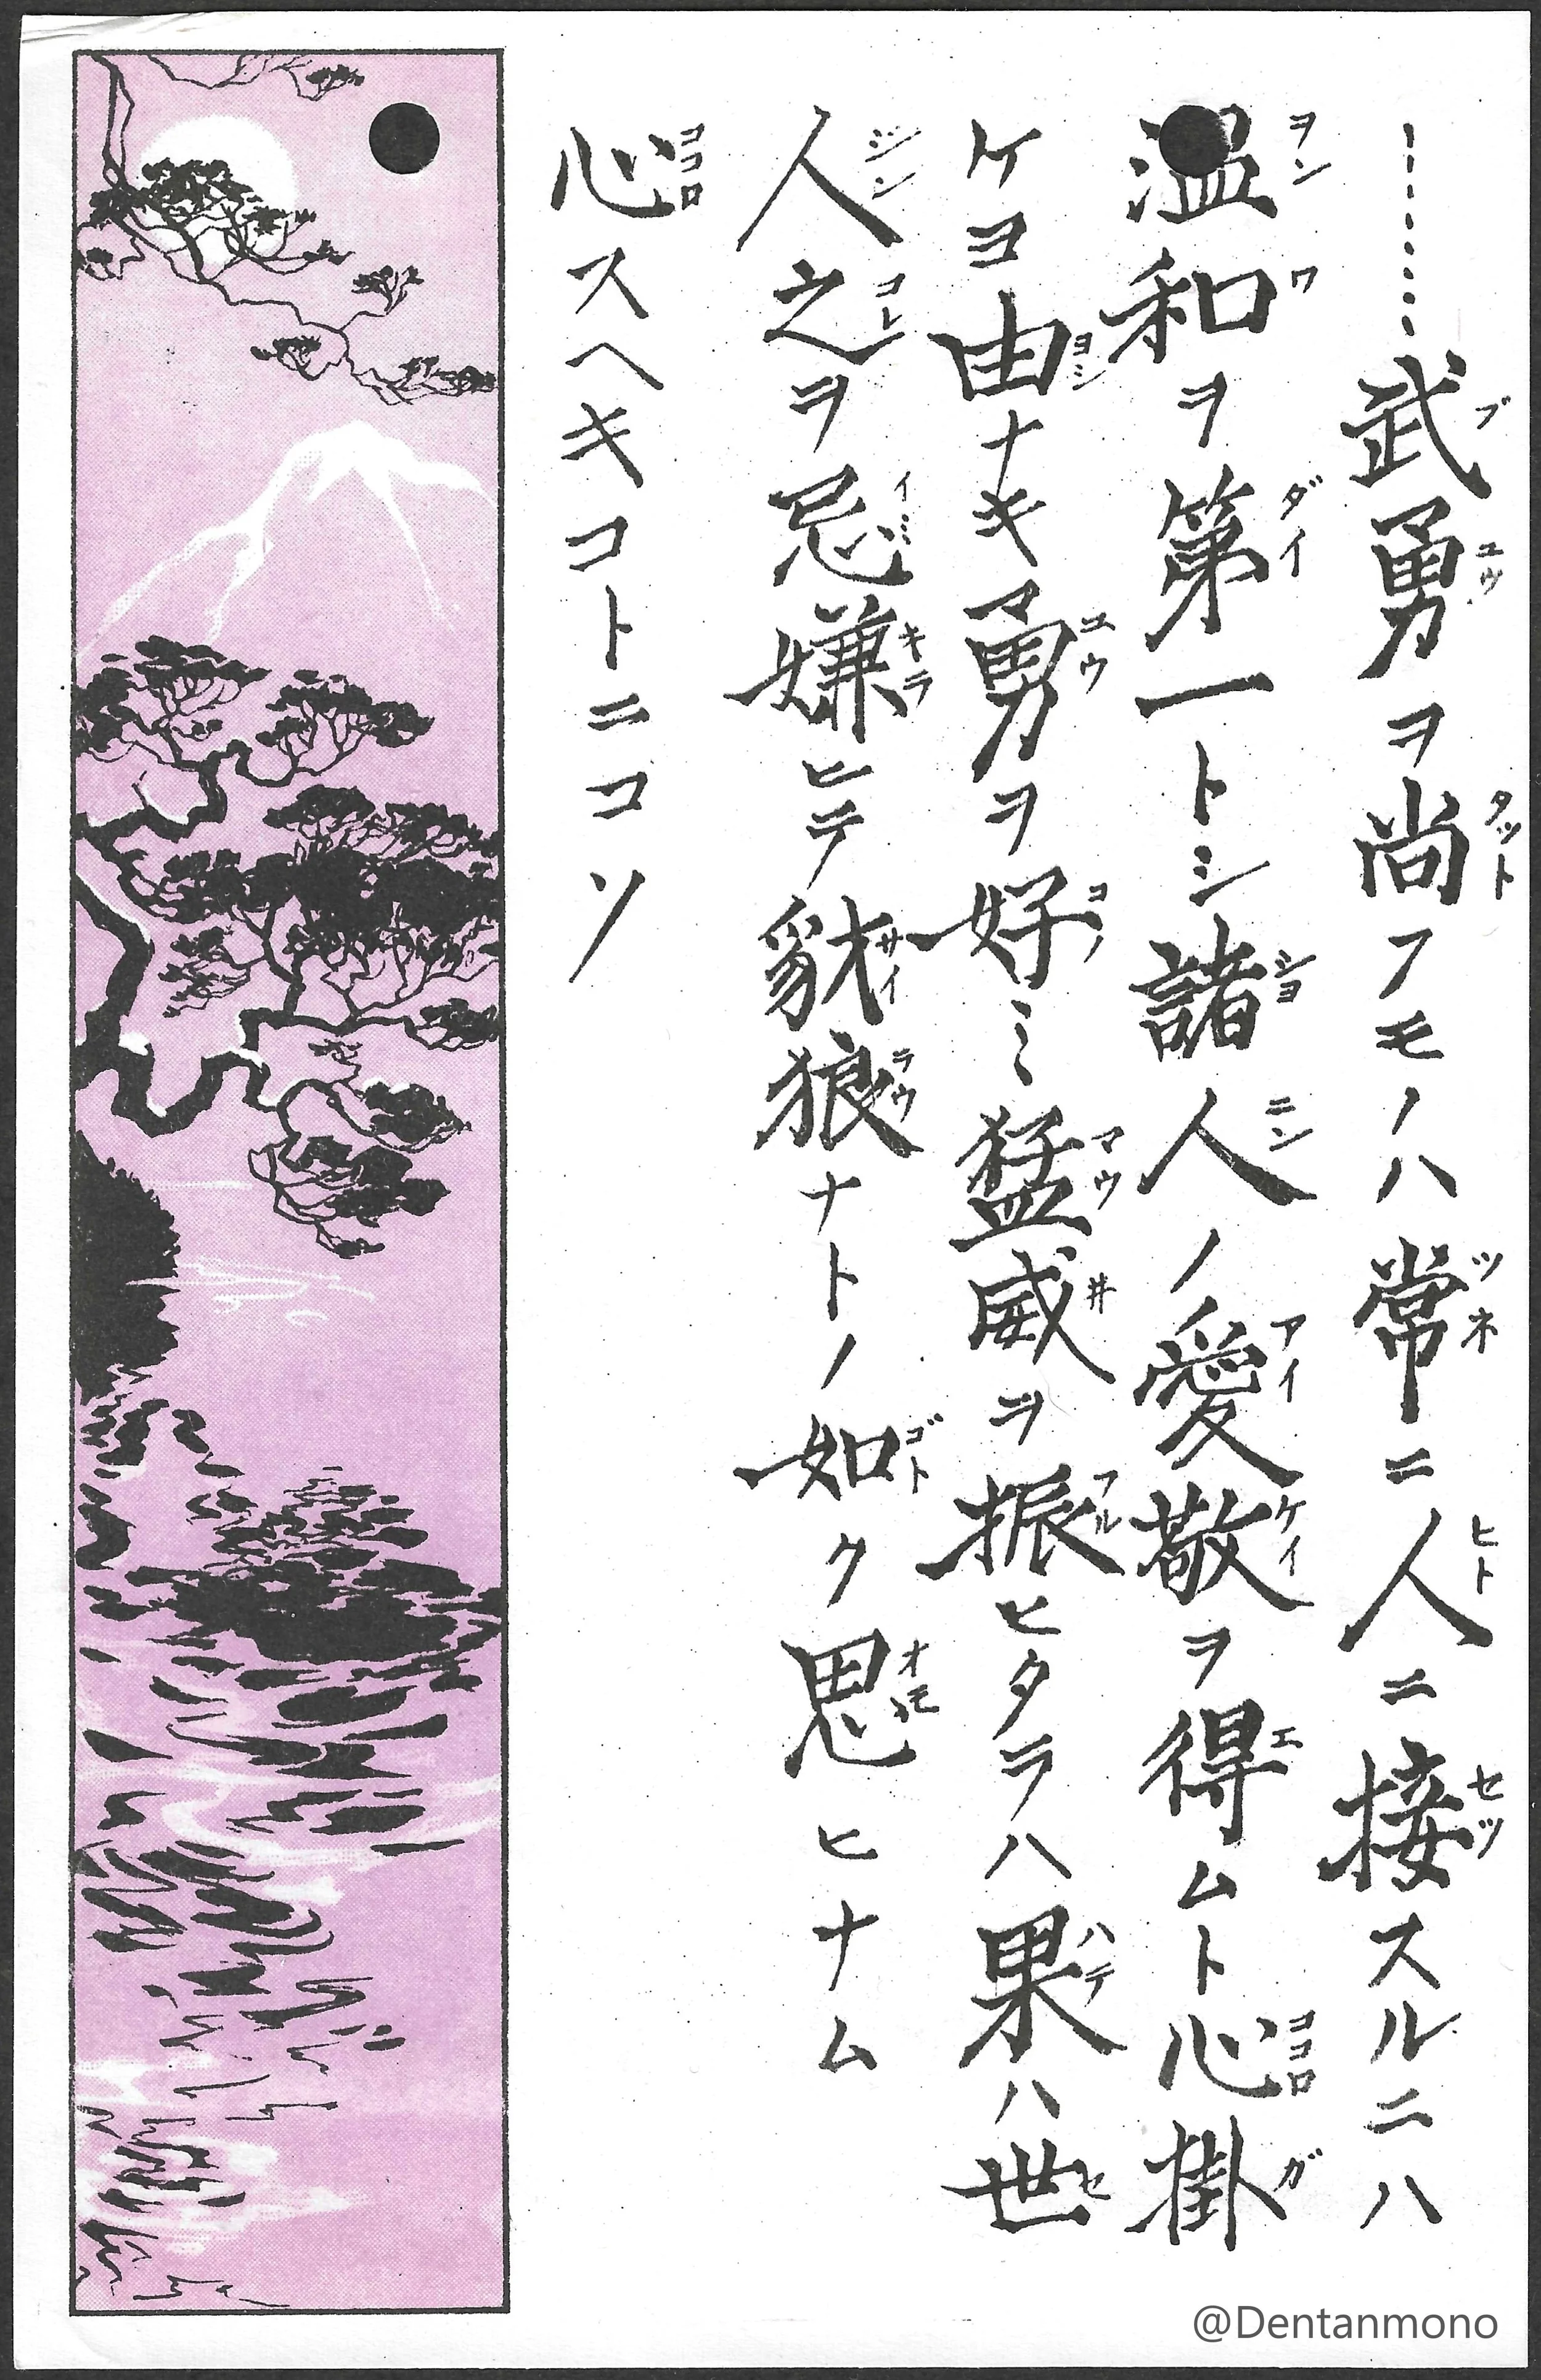 ……武勇ヲ尚フモノハ常ニ人ニ接スルニハ
温和ヲ第一トシ諸人ノ愛敬ヲ得ムト心掛
ケヨ由ナキ勇ヲ好ミ猛威ヲ振ヒタラハ果ハ世
人之ヲ忌嫌ヒテ豺狼ナトノ如ク思ヒナム
心スヘキコトニコソ
@Dentanmono